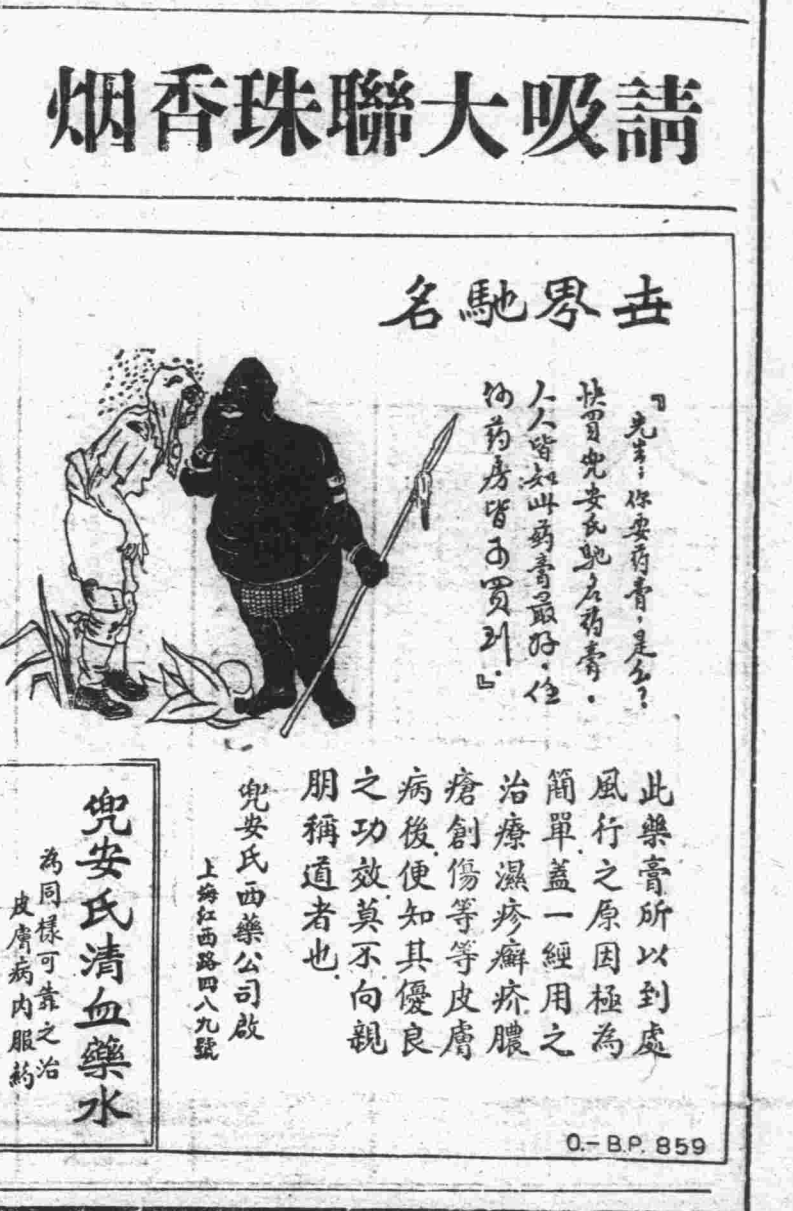 請吸大聯珠香烟
世界馳名
『先生，你要药膏，是么？
快買兜安氏馳名药膏。
人人皆如此药膏最好，任
何药房皆可買到。』
此藥膏所以到處
風行之原因極為
簡單蓋一經用之
治療濕疹癬疥膿
瘡創傷等等皮膚
病後便知其優良
之功效莫不向親
朋稱道者也
兜安氏西藥公司啟
上海江西路四八九號
兜安氏清血藥水
為同樣可靠之治
皮膚病內服药
O.–B.P. 859